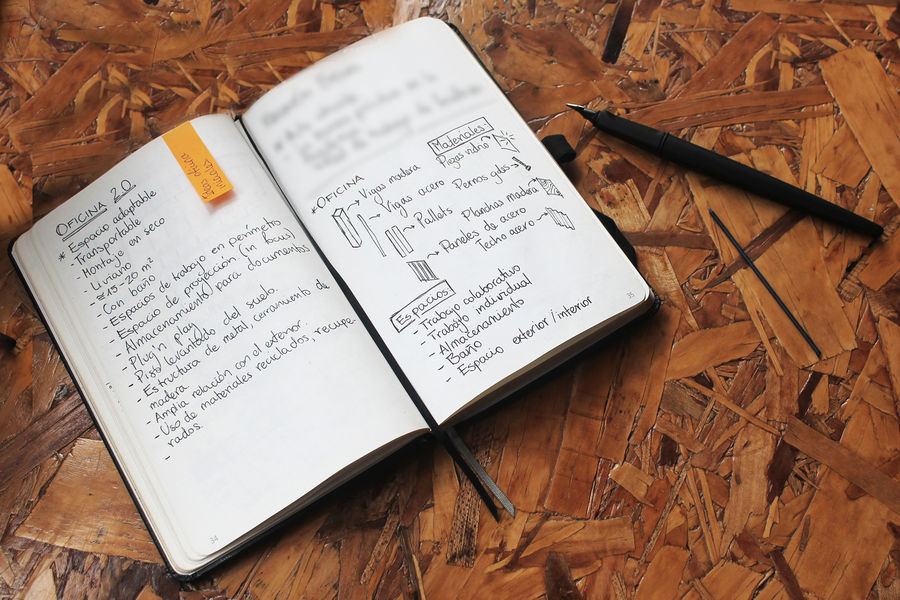 OFICINA 2.0
* Espacio adaptable
- Transportable
- Montaje en seco
- Liviano
- ≅15-20 m²
- Con baño
- Espacios de trabajo en perímetro
- Espacio de proyección (in focus)
- Almacenamiento para documentos
- Plug'n play
- Piso levantado del suelo.
- Estructura de metal, cerramiento de
madera
- Amplia relación con el exterior.
- Uso de materiales reciclados, recupe-
rados.
-
34
Materiales
* OFICINA
Vigas madera
Vigas acero
Pallets
Paneles de acero
Piezas vidrio
Pernos gdes
Planchas madera
Techo acero
Espacios
- Trabajo colaborativo
- Trabajo individual
- Almacenamiento
- Baño
- Espacio exterior/interior
35